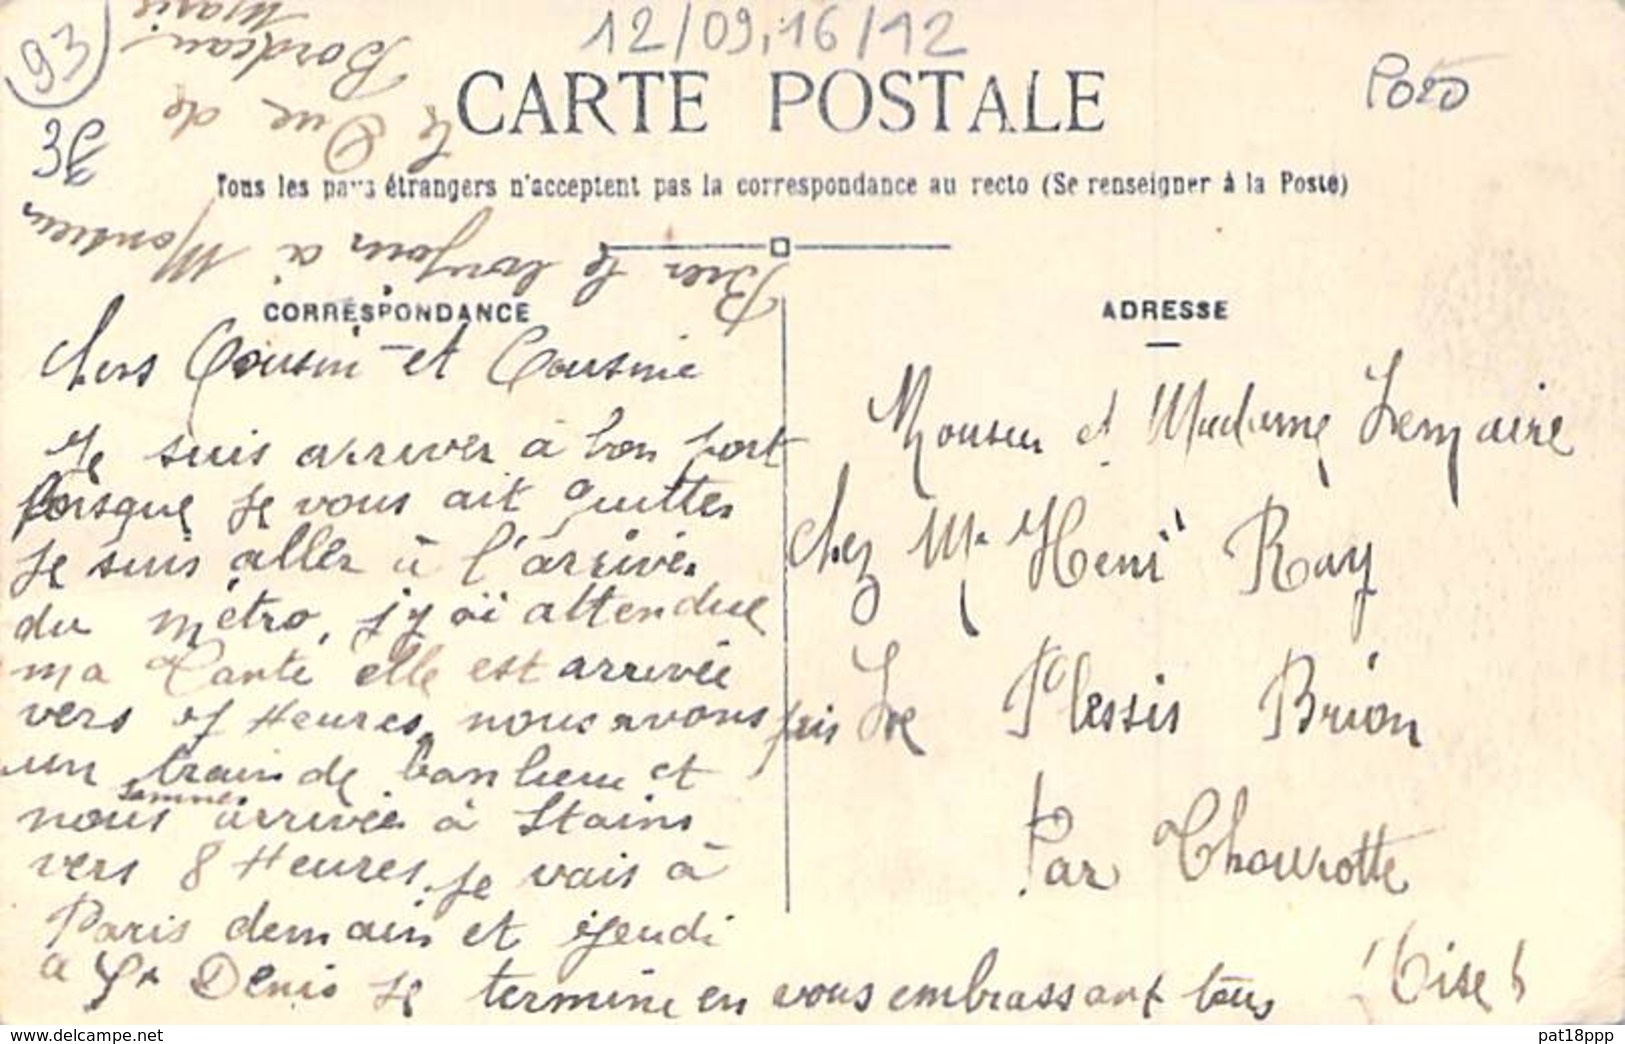 12/09,16/12
93
CARTE POSTALE
Tous les pays étrangers n'acceptent pas la correspondance au recto (Se renseigner à la Poste)
CORRESPONDANCE
chers Cousin et Cousine
Je suis arriver à bon port
lorsque je vous ait quitter
je suis aller à l'arrivée
du métro, j'y ai attendue
ma Tante elle est arrivée
vers 7 Heures, nous avons pris
un train de banlieue et
nous sommes arrivée à Stains
vers 8 Heures, je vais à
Paris demain et jeudi
a St Denis je termine en vous embrassant tous
Bien le bonjour à Monsieur
le Duc de
Bordeau
Marie
ADRESSE
Monsieur et Madame Lemaire
chez Mr Henri Ray
Le Plessis Brion
Par Thourotte
(Oise)
pat18ppp